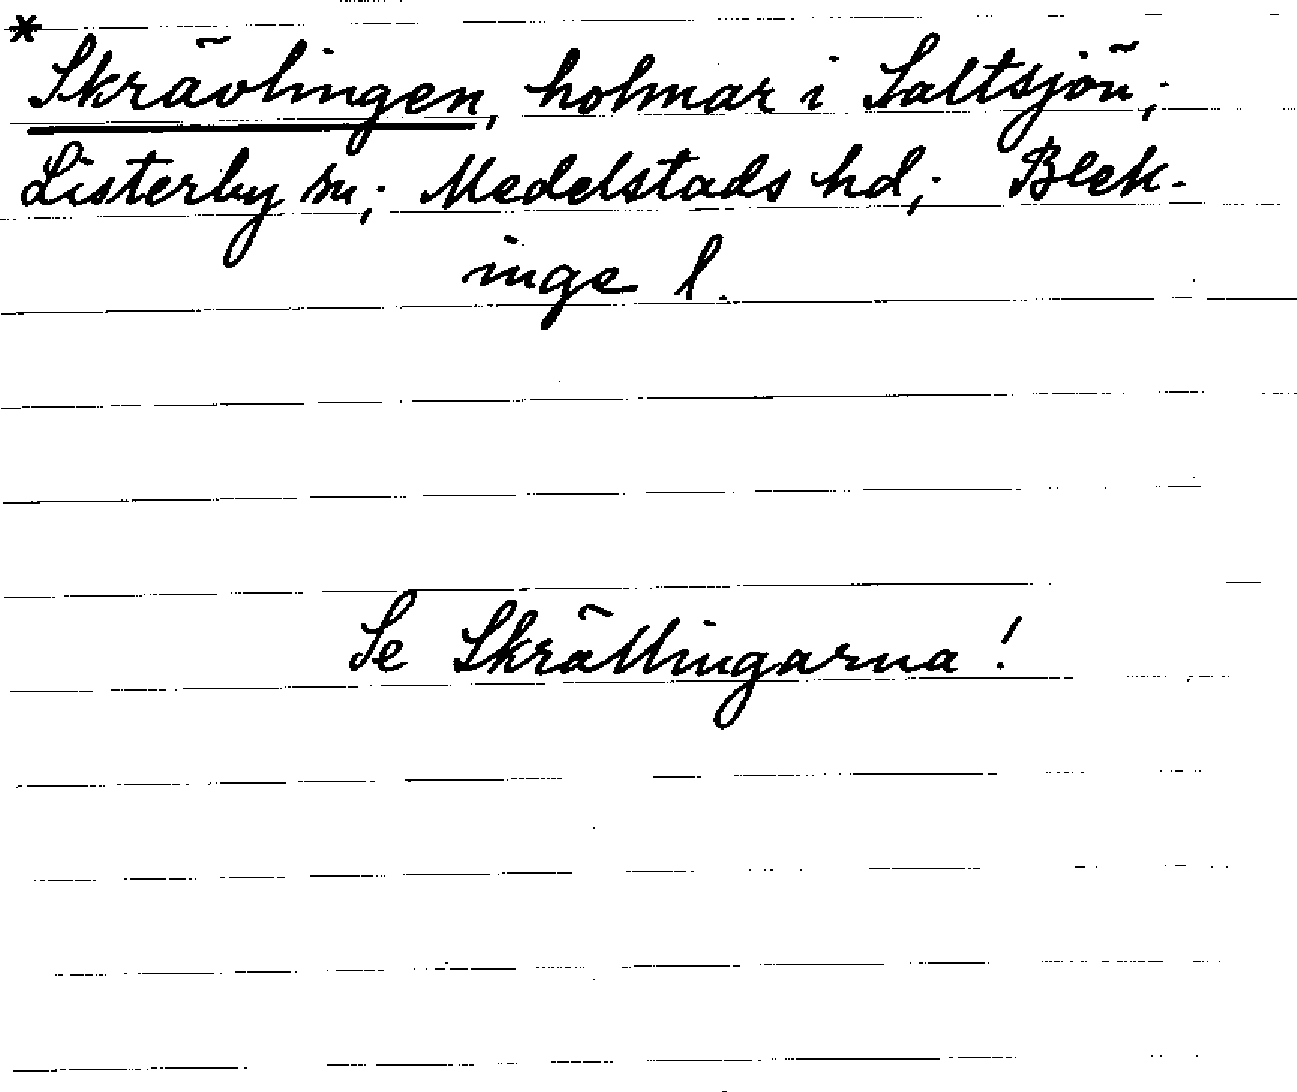 *
Skrävlingen, holmar i Saltsjön;
Listerby sn; Medelstads hd; Blek-
inge l.
Se Skrällingarna!